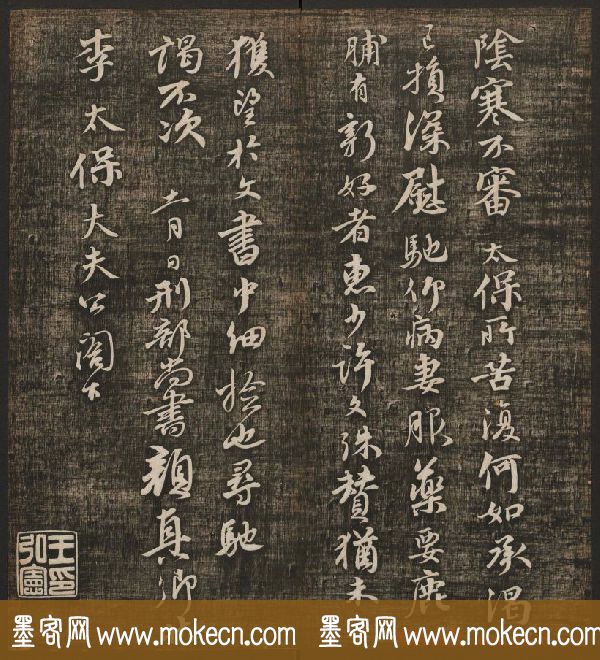 陰寒不審太保所苦復何如承渴
已損深慰馳仰病妻服藥要鹿
脯有新好者惠少許文殊贊猶未
獲望於文書中細檢也尋馳
謁不次 十一月日刑部尚書顏真卿
李太保大夫公閣下
王弘憲
墨客网 www.mokecn.com 墨客网 www.mokecn.com